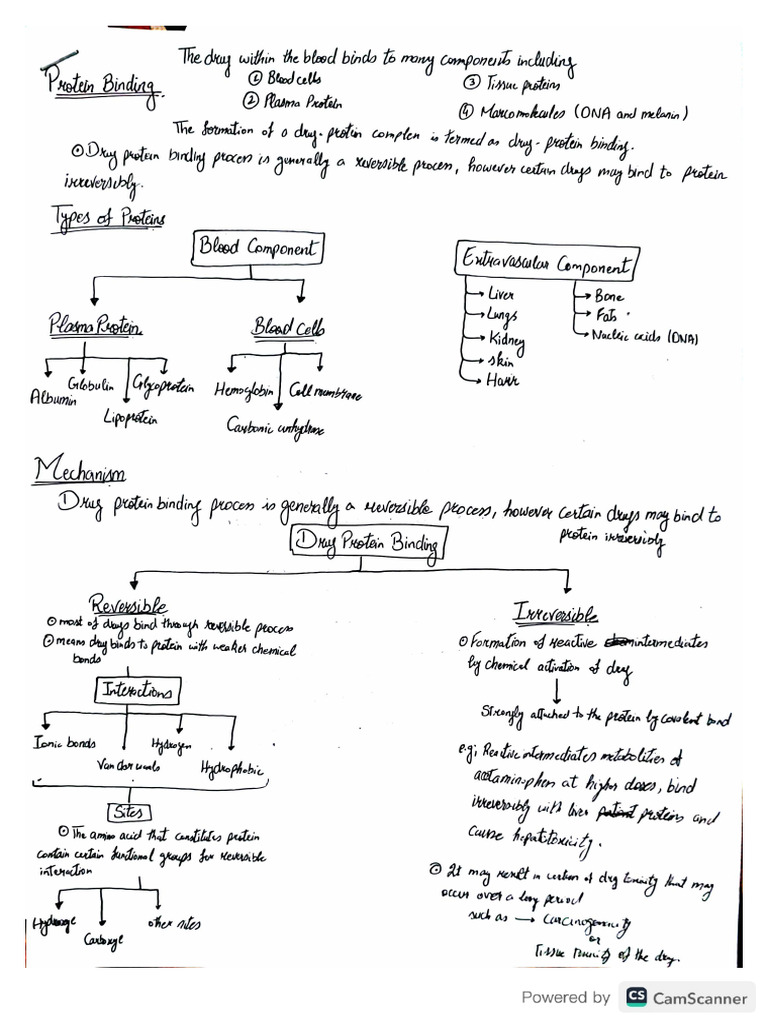 Protein Binding.
The drug within the blood binds to many components including
① Blood cells
③ Tissue proteins
② Plasma Protein
④ Marcomolecules (DNA and melanin)
The formation of a drug-protein complex is termed as drug-protein binding.
⊙ Drug protein binding process is generally a reversible process, however certain drugs may bind to protein
irreversibly.
Types of Proteins
Blood Component
Extravascular Component
Plasma Protein
Blood Cells
Albumin
Globulin
Lipoprotein
Glycoprotein
Hemoglobin
Carbonic anhydrase
Cell membrane
Liver
Lungs
Kidney
Skin
Hair
Bone
Fats
Nucleic acids (DNA)
Mechanism
Drug protein binding process is generally a reversible process, however certain drugs may bind to
protein irreversibly
Drug Protein Binding
Reversible
⊙ most of drugs bind through reversible process
⊙ means drug binds to protein with weaker chemical
bonds
Interactions
Ionic bonds
Van der waals
Hydrogen
Hydrophobic
Sites
⊙ The amino acid that constitutes protein
contain certain functional groups for reversible
interaction
Carboxyl
other sites
Irreversible
⊙ Formation of reactive intermediates
by chemical activation of drug
Strongly attached to the protein by covalent bond
e.g; Reactive intermediates metabolities of
acetaminophen at higher doses, bind
irreversibly with liver proteins and
cause hepatotoxicity.
⊙ It may result in of drug toxicity that may
occur over a long period
such as → Carcinogenicity
or
Tissue toxicity of the drug.
Powered by CS CamScanner